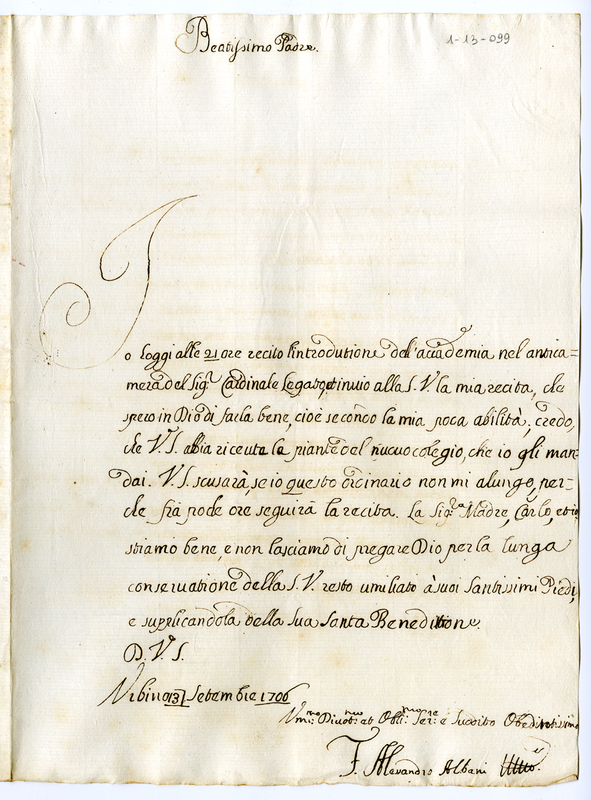 Beatissimo Padre.
1-13-099
Io loggi alle 21 ore recito l'introdutione dell'accademia nel antica=
mera del Sig.r Cardinale Legato, et inuio alla S. V. la mia recita, che
spero in Dio di farla bene, cioè secondo la mia poca abilità; credo,
che V.S. abbia riceute le piante del nuouo colegio, che io gli man=
dai. V.S. scusarà, se io questo ordinario non mi alungo, per=
che frà poche ore seguirà la recita. La Sig.ra Madre, Carlo, et io
stiamo bene, e non lasciamo di pregare Dio per la lunga
conseruatione della S.V. resto umiliato à suoi Santissimi Piedi,
e suplicandola della sua Santa Beneditione
D. V. S.
Vrbino 13 Setembre 1706
Vmi.mo Diuot.mo et Obli.mo Ser.e e Suddito Obedientissimo
F. Alesandro Albani